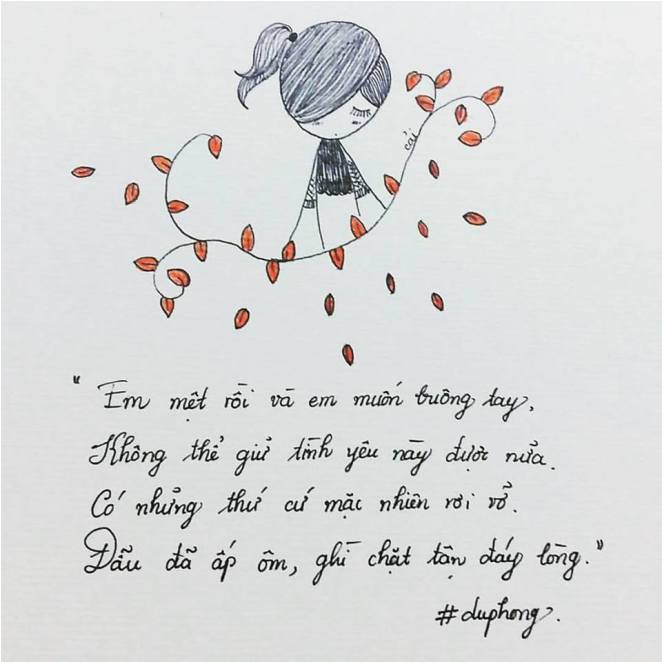 cải
"Em mệt rồi và em muốn buông tay,
Không thể giữ tình yêu này được nữa.
Có những thứ cứ mặc nhiên rơi vỡ.
Dẫu đã ấp ôm, ghì chặt tận đáy lòng."
#duphong.